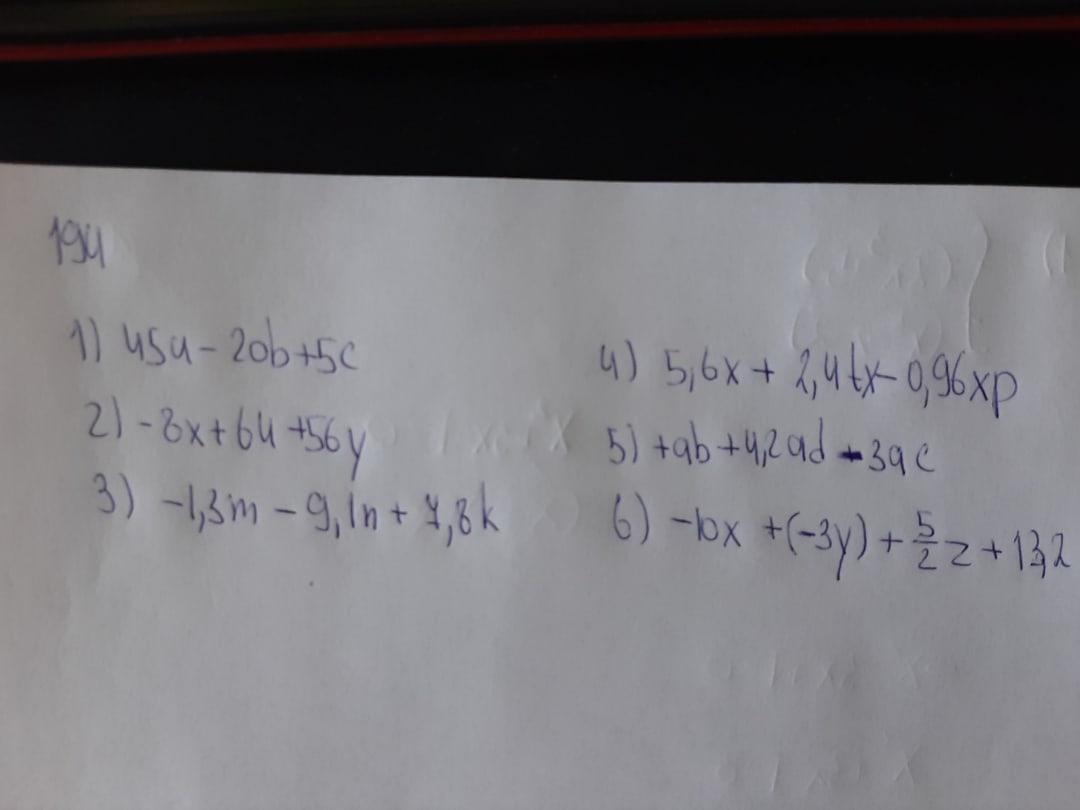 194
1) 45a - 20b + 5c
2) -8x + 64 + 56y
3) -1,3m - 9,1n + 7,8k
4) 5,6x + 2,4tx - 0,96xp
5) +ab + 4,2ad - 3ac
6) -10x + (-3y) + 5/2 z + 13,2